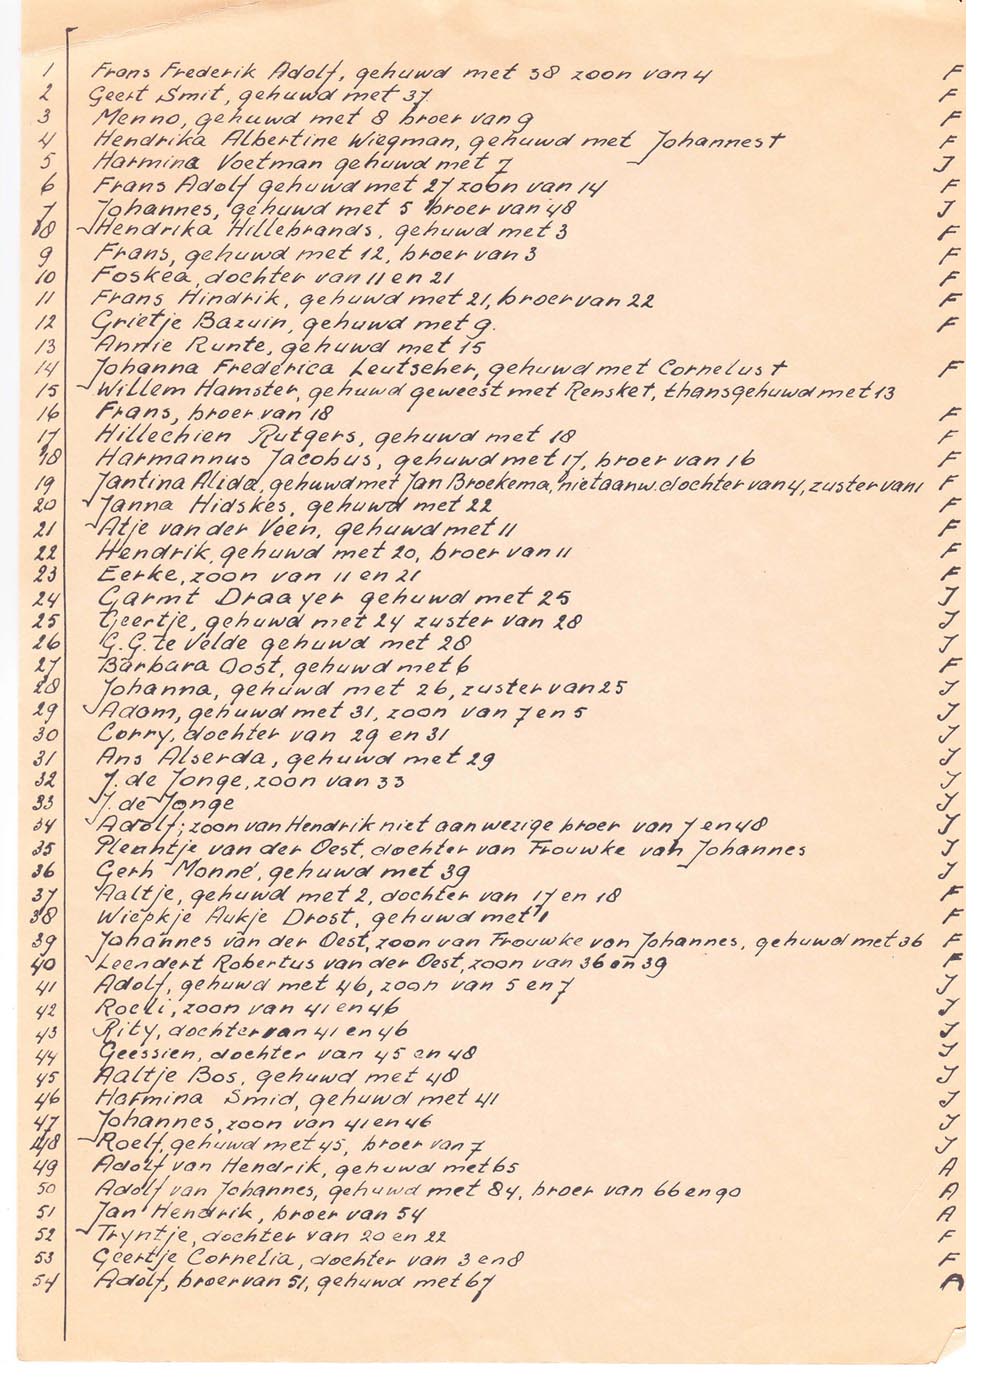 1 Frans Frederik Adolf, gehuwd met 38 zoon van 4 F
2 Geert Smit, gehuwd met 37 F
3 Menno, gehuwd met 8 broer van 9 F
4 Hendrika Albertine Wiegman, gehuwd met Johannes† F
5 Harmina Voetman gehuwd met 7 J
6 Frans Adolf gehuwd met 27 zoon van 14 F
7 Johannes, gehuwd met 5 broer van 48 J
8 Hendrika Hillebrands, gehuwd met 3 F
9 Frans, gehuwd met 12, broer van 3 F
10 Foskea, dochter van 11 en 21 F
11 Frans Hindrik, gehuwd met 21, broer van 22 F
12 Grietje Bazuin, gehuwd met 9. F
13 Annie Runte, gehuwd met 15
14 Johanna Frederica Leutscher, gehuwd met Cornelus† F
15 Willem Hamster, gehuwd geweest met Renske†, thans gehuwd met 13
16 Frans, broer van 18 F
17 Hillechien Rutgers, gehuwd met 18 F
18 Harmannus Jacobus, gehuwd met 17, broer van 16 F
19 Jantina Alida, gehuwd met Jan Broekema, niet aanw. dochter van 4, zuster van 1 F
20 Janna Hidskes, gehuwd met 22 F
21 Atje van der Veen, gehuwd met 11 F
22 Hendrik, gehuwd met 20, broer van 11 F
23 Eerke, zoon van 11 en 21 F
24 Garmt Draayer gehuwd met 25 J
25 Geertje, gehuwd met 24 zuster van 28 J
26 G.G. te Velde gehuwd met 28 J
27 Barbara Oost, gehuwd met 6 F
28 Johanna, gehuwd met 26, zuster van 25 J
29 Adam, gehuwd met 31, zoon van 7 en 5 J
30 Corry, dochter van 29 en 31 J
31 Ans Alserda, gehuwd met 29 J
32 J. de Jonge, zoon van 33 J
33 J. de Jonge J
34 Adolf; zoon van Hendrik niet aanwezige broer van 7 en 48 J
35 Pleuntje van der Oest, dochter van Frouwke van Johannes J
36 Gerh Monné, gehuwd met 39 J
37 Aaltje, gehuwd met 2, dochter van 17 en 18 F
38 Wiepkje Aukje Drost, gehuwd met 1 F
39 Johannes van der Oest, zoon van Frouwke van Johannes, gehuwd met 36 F
40 Leendert Robertus van der Oest, zoon van 36 en 39 F
41 Adolf, gehuwd met 46, zoon van 5 en 7 J
42 Roeli, zoon van 41 en 46 J
43 Rity, dochter van 41 en 46 J
44 Geessien, dochter van 45 en 48 J
45 Aaltje Bos, gehuwd met 48 J
46 Harmina Smid, gehuwd met 41 J
47 Johannes, zoon van 41 en 46 J
48 Roelf, gehuwd met 45, broer van 7 J
49 Adolf van Hendrik, gehuwd met 65 A
50 Adolf van Johannes, gehuwd met 84, broer van 66 en 90 A
51 Jan Hendrik, broer van 54 A
52 Tryntje, dochter van 20 en 22 F
53 Geertje Cornelia, dochter van 3 en 8 F
54 Adolf, broer van 51, gehuwd met 67 A